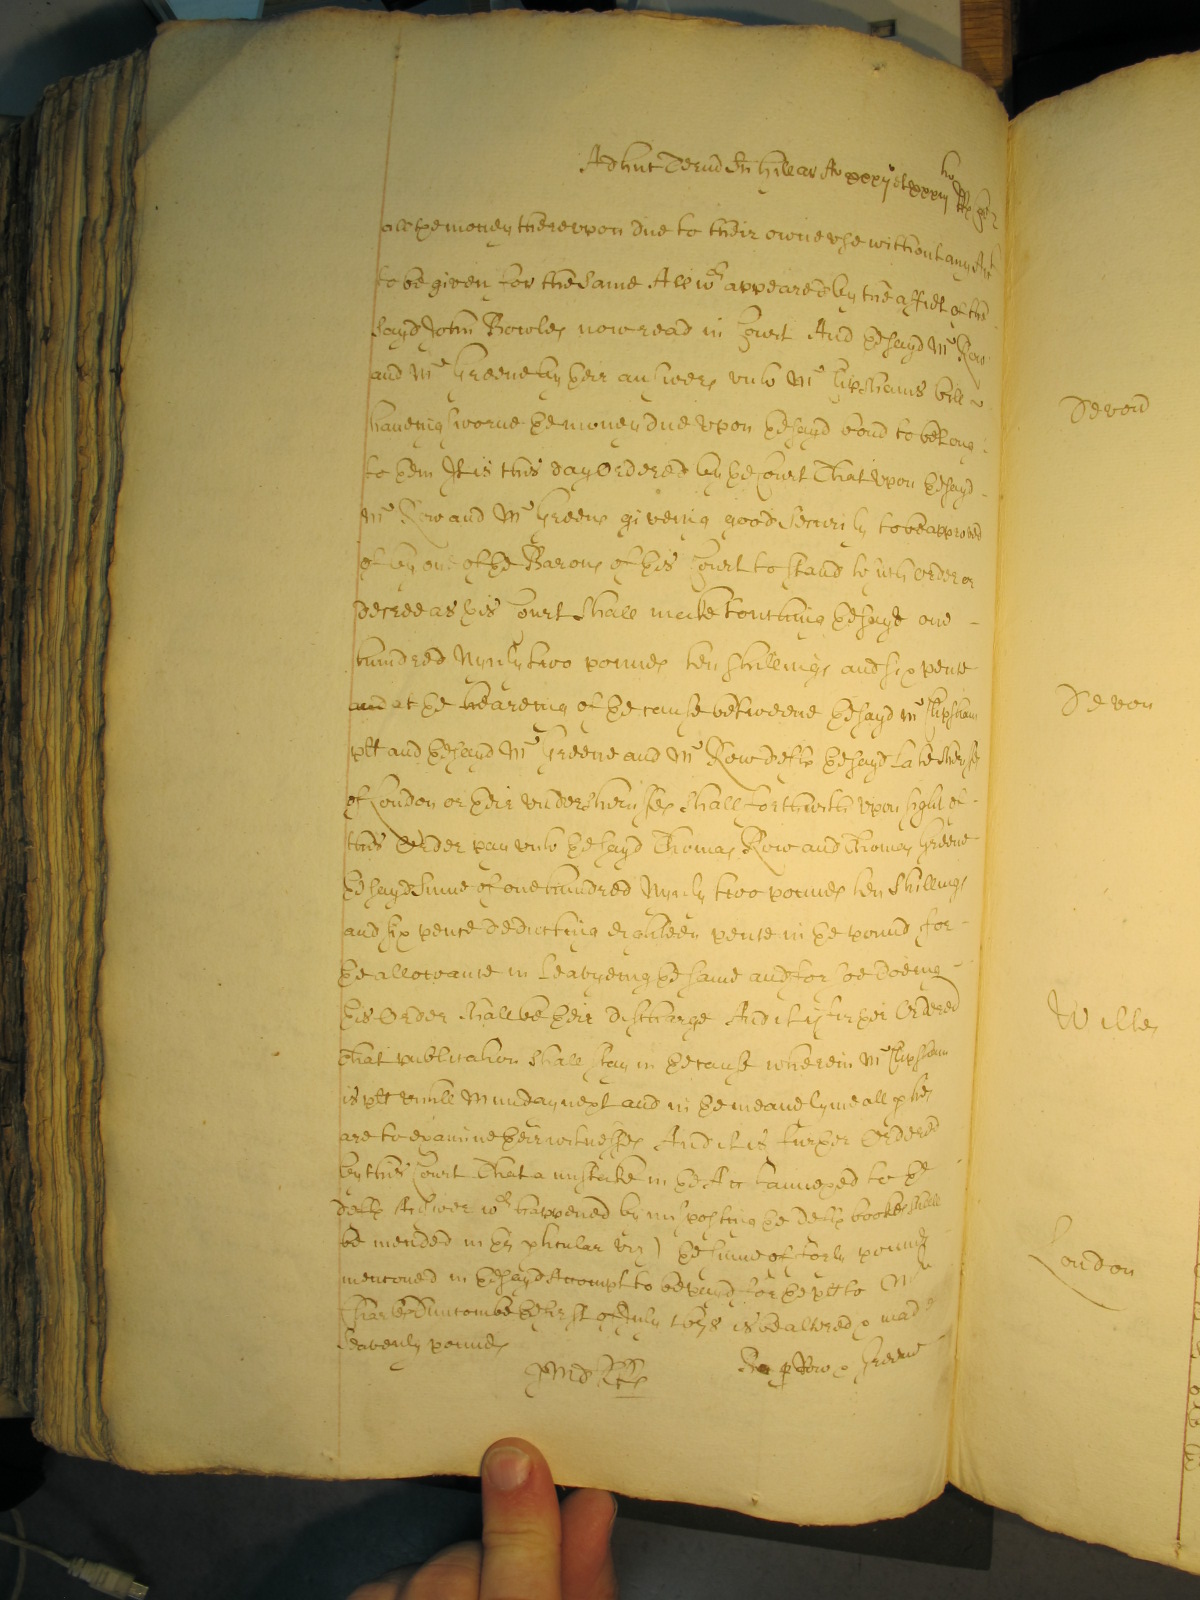 Adhuc de Term Sci Hillar Ao xxxij et xxxiij
all ye money thereupon due to their owne use without any
to be given for the same All wch appeareth by the affidt of the
sayd John Bowles now read in Court And ye sayd Mr Row
and Mr Greene by yeir answere unto Mr Clipshams bill
haveing sworne ye money due upon ye sayd bond to belong
to yem It is this day Ordered by ye Court That upon ye sayd
Mr Row and Mr Greene giveing good Security to be approved
of by one of ye Barons of yis Court to stand to such order or
decree as yis Court shall make touching ye sayd one
hundred Nynty two pounds ten shillings and six pence
and at ye heareing of ye cause betweene ye sayd Mr Clipsham
plt and ye sayd Mr Greene and Mr Row defts ye sayd late Sheriffs
of London or yeir undersheriffes shall forthwith upon sight of
this Order pay unto ye sayd Thomas Row and Thomas Greene
ye sayd Sume of one hundred Nynty two pounds ten shillings
and six pence deducting eighteen pence in ye pound for
ye allowance in leavyeing ye same and for soe doeing
yis Order shall be yeir discharge And it is furyer Ordered
That publication shall stay in ye cause wherein Mr Clipsham
is plt untill Munday next and in ye meane tyme all ptes
are to examine yeir witnesses And it is furyer Ordered
by this Court That a mistake in ye Acct annexed to ye
defts Answer wch happened by misposting ye defts bookes shall
be mended in ys pticular viz) ye sume of forty pounds
mencioned in ye sayd Accompt to be payd for ye plt to Mr
Duncombe ye first of July is be altered & made
Seaventy pounds
p Row & Greene
Devon
Devon
Wiltes
London